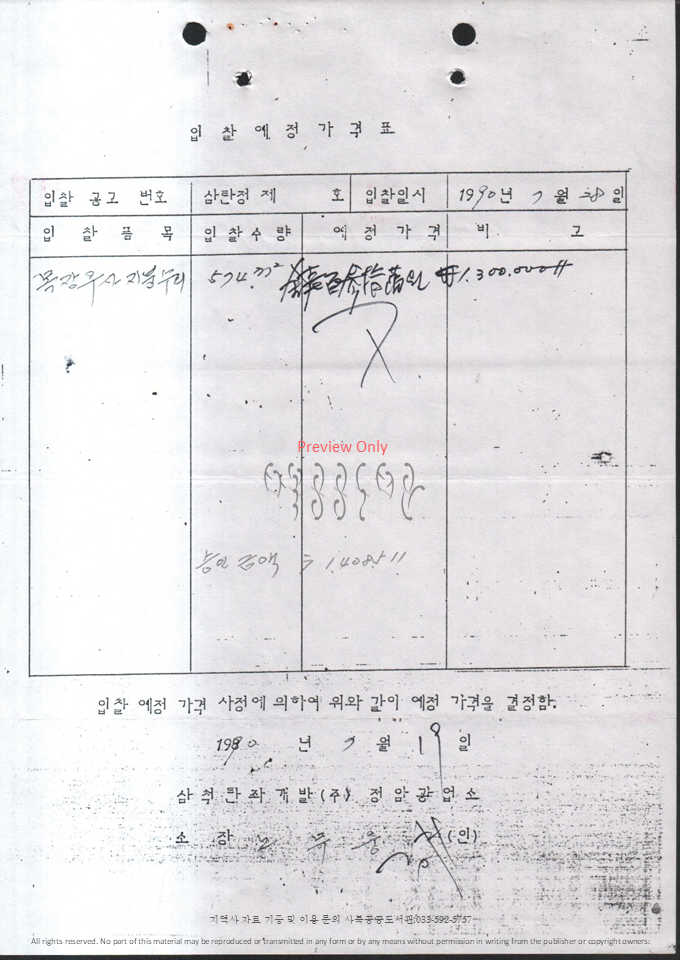 입찰예정가격표
입찰 공고 번호 삼탄정 제 호 입찰일시 1990년 7월 28일
입찰품목 입찰수량 예정가격 비고
574.m² ₩1.300.000
Preview Only
금액 1408511
입찰 예정 가격 사정에 의하여 위와 같이 예정 가격을 결정함.
1990 년 7 월 19 일
삼척탄좌개발(주) 정암광업소
소장 (인)
지역사 자료 기증 및 이용 문의 사북공공도서관:033-592-5757
All rights reserved. No part of this material may be reproduced or transmitted in any form or by any means without permission in writing from the publisher or copyright owners.